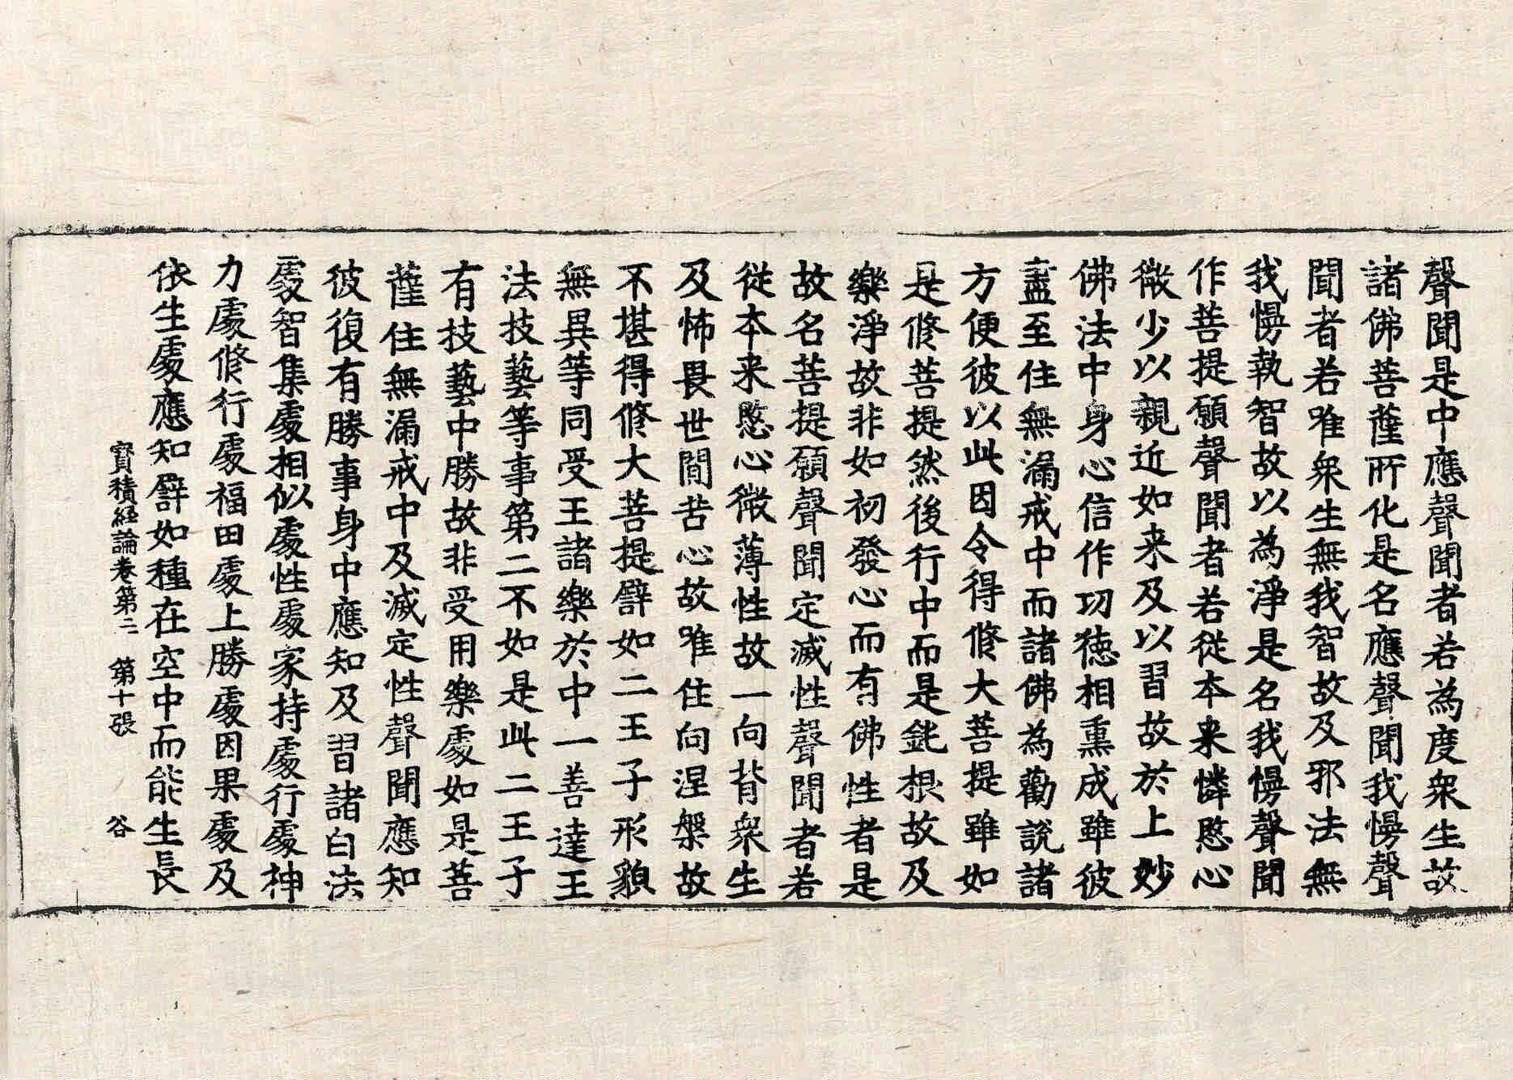 聲聞是中應聲聞者若為度衆生故
諸佛菩薩所化是名應聲聞我慢聲
聞者若唯衆生無我智故及邪法無
我慢執智故以為淨是名我慢聲聞
作菩提願聲聞者若從本来憐愍心
微少以親近如来及以習故於上妙
佛法中身心信作功徳相熏成雖彼
盡至住無漏戒中而諸佛為勸說諸
方便彼以此因令得修大菩提雖如
是修菩提然後行中而是鈍根故及
樂淨故非如初發心而有佛性者是
故名菩提願聲聞定滅性聲聞者若
從本来愍心微薄性故一向背衆生
及怖畏世間苦心故唯住向涅槃故
不堪得修大菩提譬如二王子形貌
無異等同受王諸樂於中一善達王
法技藝等事第二不如是此二王子
有技藝中勝故非受用樂處如是菩
薩住無漏戒中及滅定性聲聞應知
彼復有勝事身中應知及習諸白法
處智集處相似處性處家持處行處神
力處修行處福田處上勝處因果處及
依生處應知譬如種在空中而能生長
寳積経論卷第二 第十張 谷